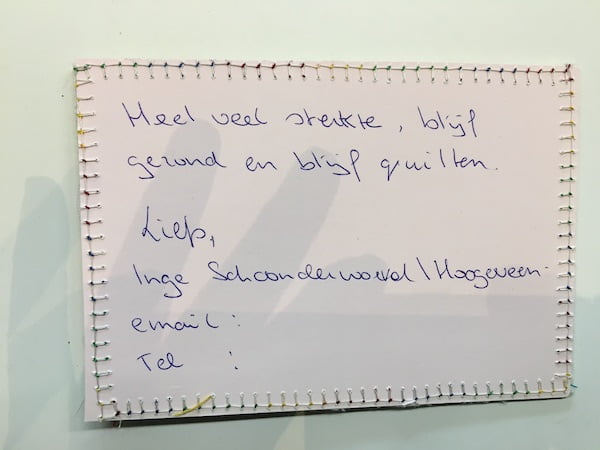 Heel veel sterkte, blijf
gezond en blijf quilten.
Liefs,
Inge Schoonderwoerd \ Hoogeveen.
email :
Tel :